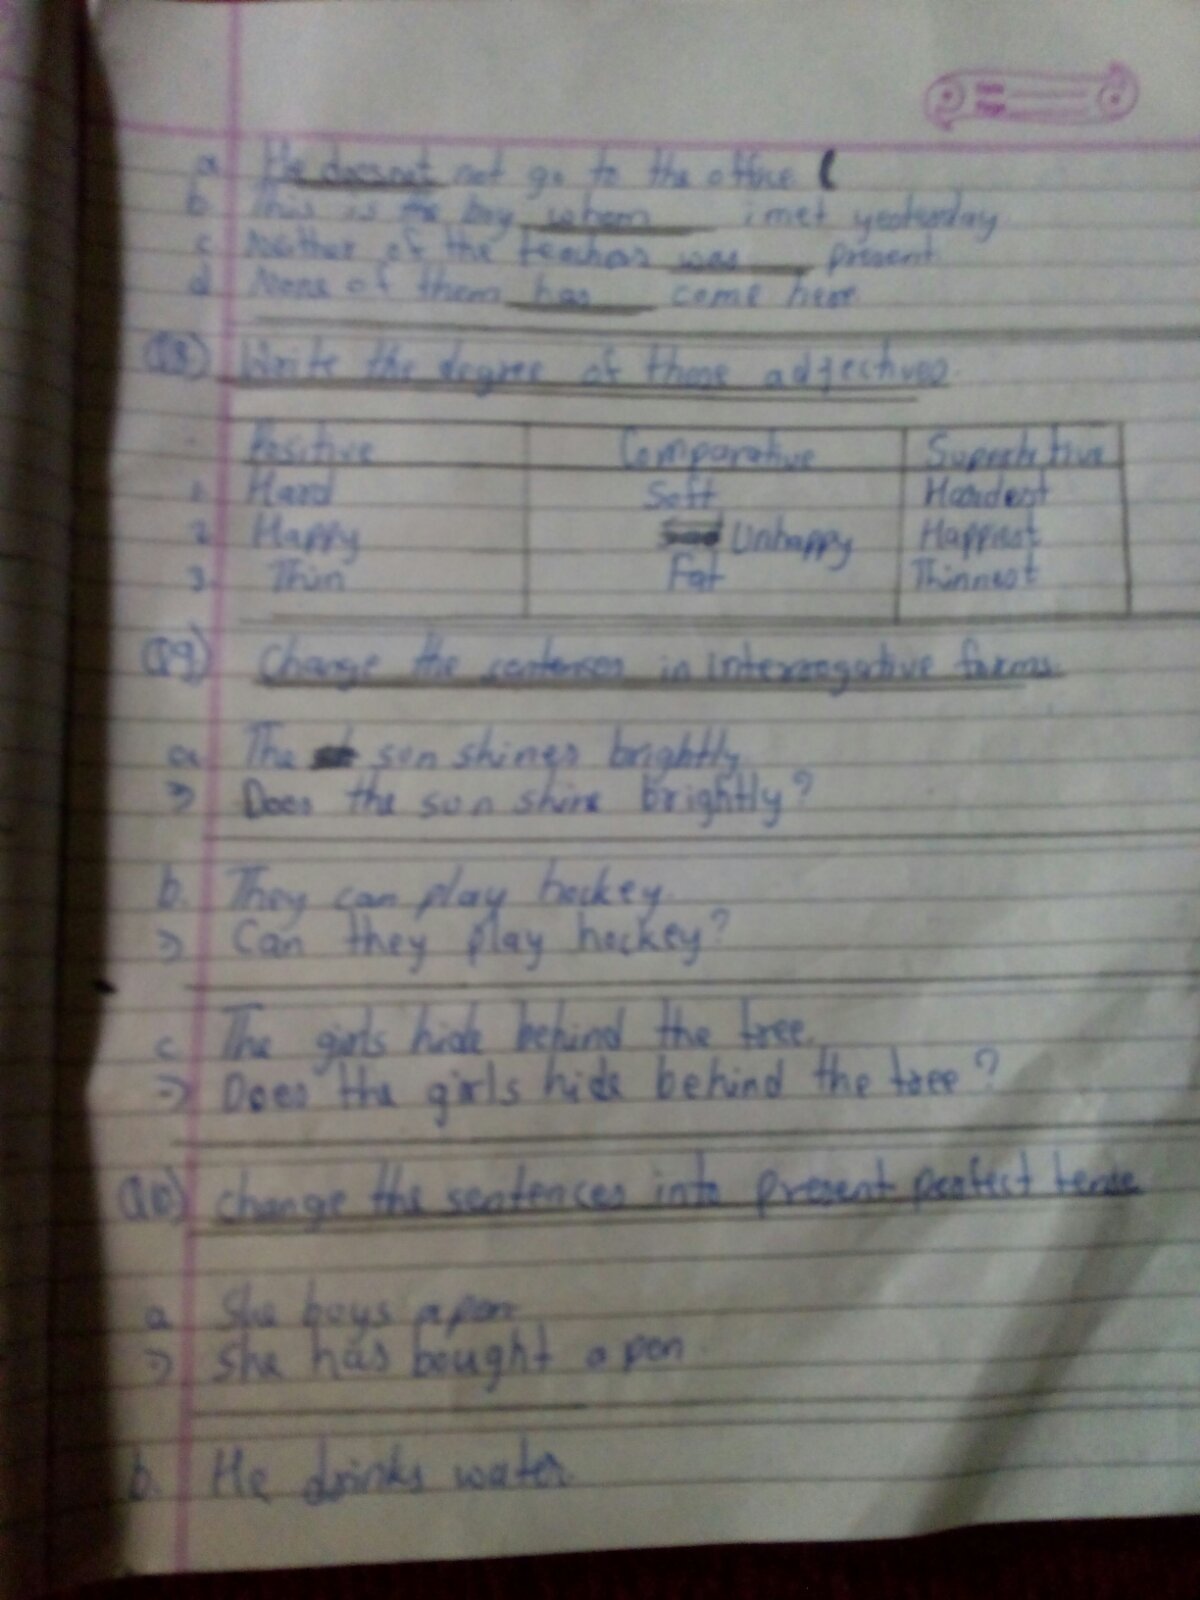 a He doesnot not go to the office (
b. This is the boy whom i met yesterday
c Neither of the teachers was present
d None of them has come here
Q8) Write the degree of these adjectives.
Positive Comparative Superlative
1. Hard Soft Hardest
2 Happy Unhappy Happiest
3. Thin Fat Thinnest
Q9) Change the sentences in interrogative forms.
a The sun shines brightly.
⇒ Does the sun shine brightly?
b. They can play hockey.
⇒ Can they play hockey?
c The girls hide behind the tree.
⇒ Does the girls hide behind the tree?
Q10) Change the sentences into present perfect tense
a She buys a pen
⇒ She has bought a pen.
b. He drinks water.